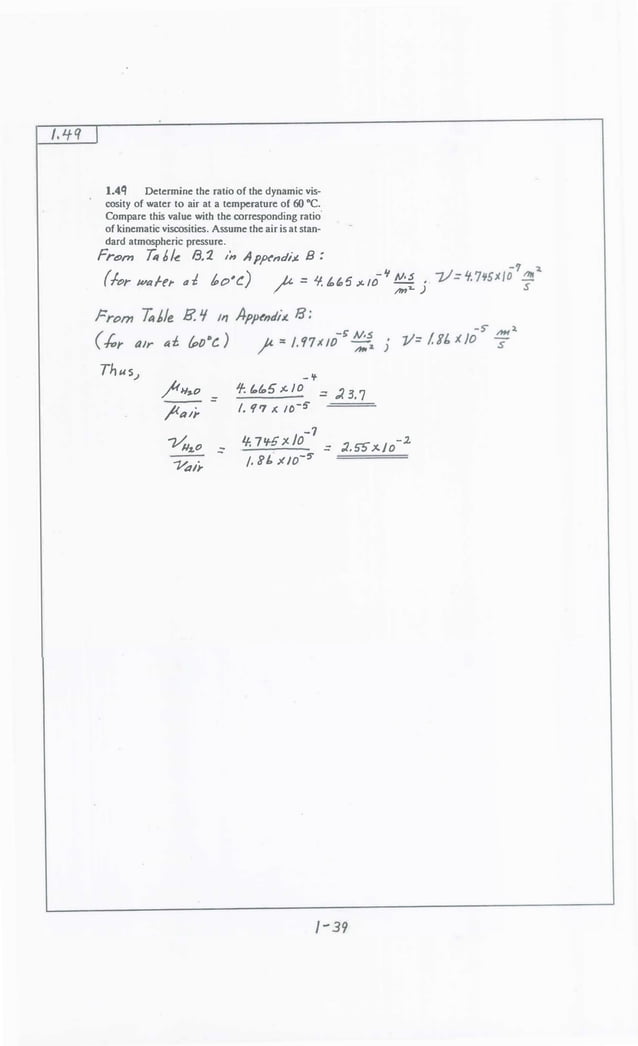 1.49
1.49 Determine the ratio of the dynamic vis-
cosity of water to air at a temperature of 60 °C.
Compare this value with the corresponding ratio
of kinematic viscosities. Assume the air is at stan-
dard atmospheric pressure.
From Table B.2 in Appendix B:
(for water at 60°C) μ = 4.665 x 10⁻⁴ N·s/m² ; ν = 4.745 x 10⁻⁷ m²/s
From Table B.4 in Appendix B:
(for air at 60°C) μ = 1.97 x 10⁻⁵ N·s/m² ; ν = 1.86 x 10⁻⁵ m²/s
Thus,
μH₂O / μair = 4.665 x 10⁻⁴ / 1.97 x 10⁻⁵ = 23.7
νH₂O / νair = 4.745 x 10⁻⁷ / 1.86 x 10⁻⁵ = 2.55 x 10⁻²
1-39